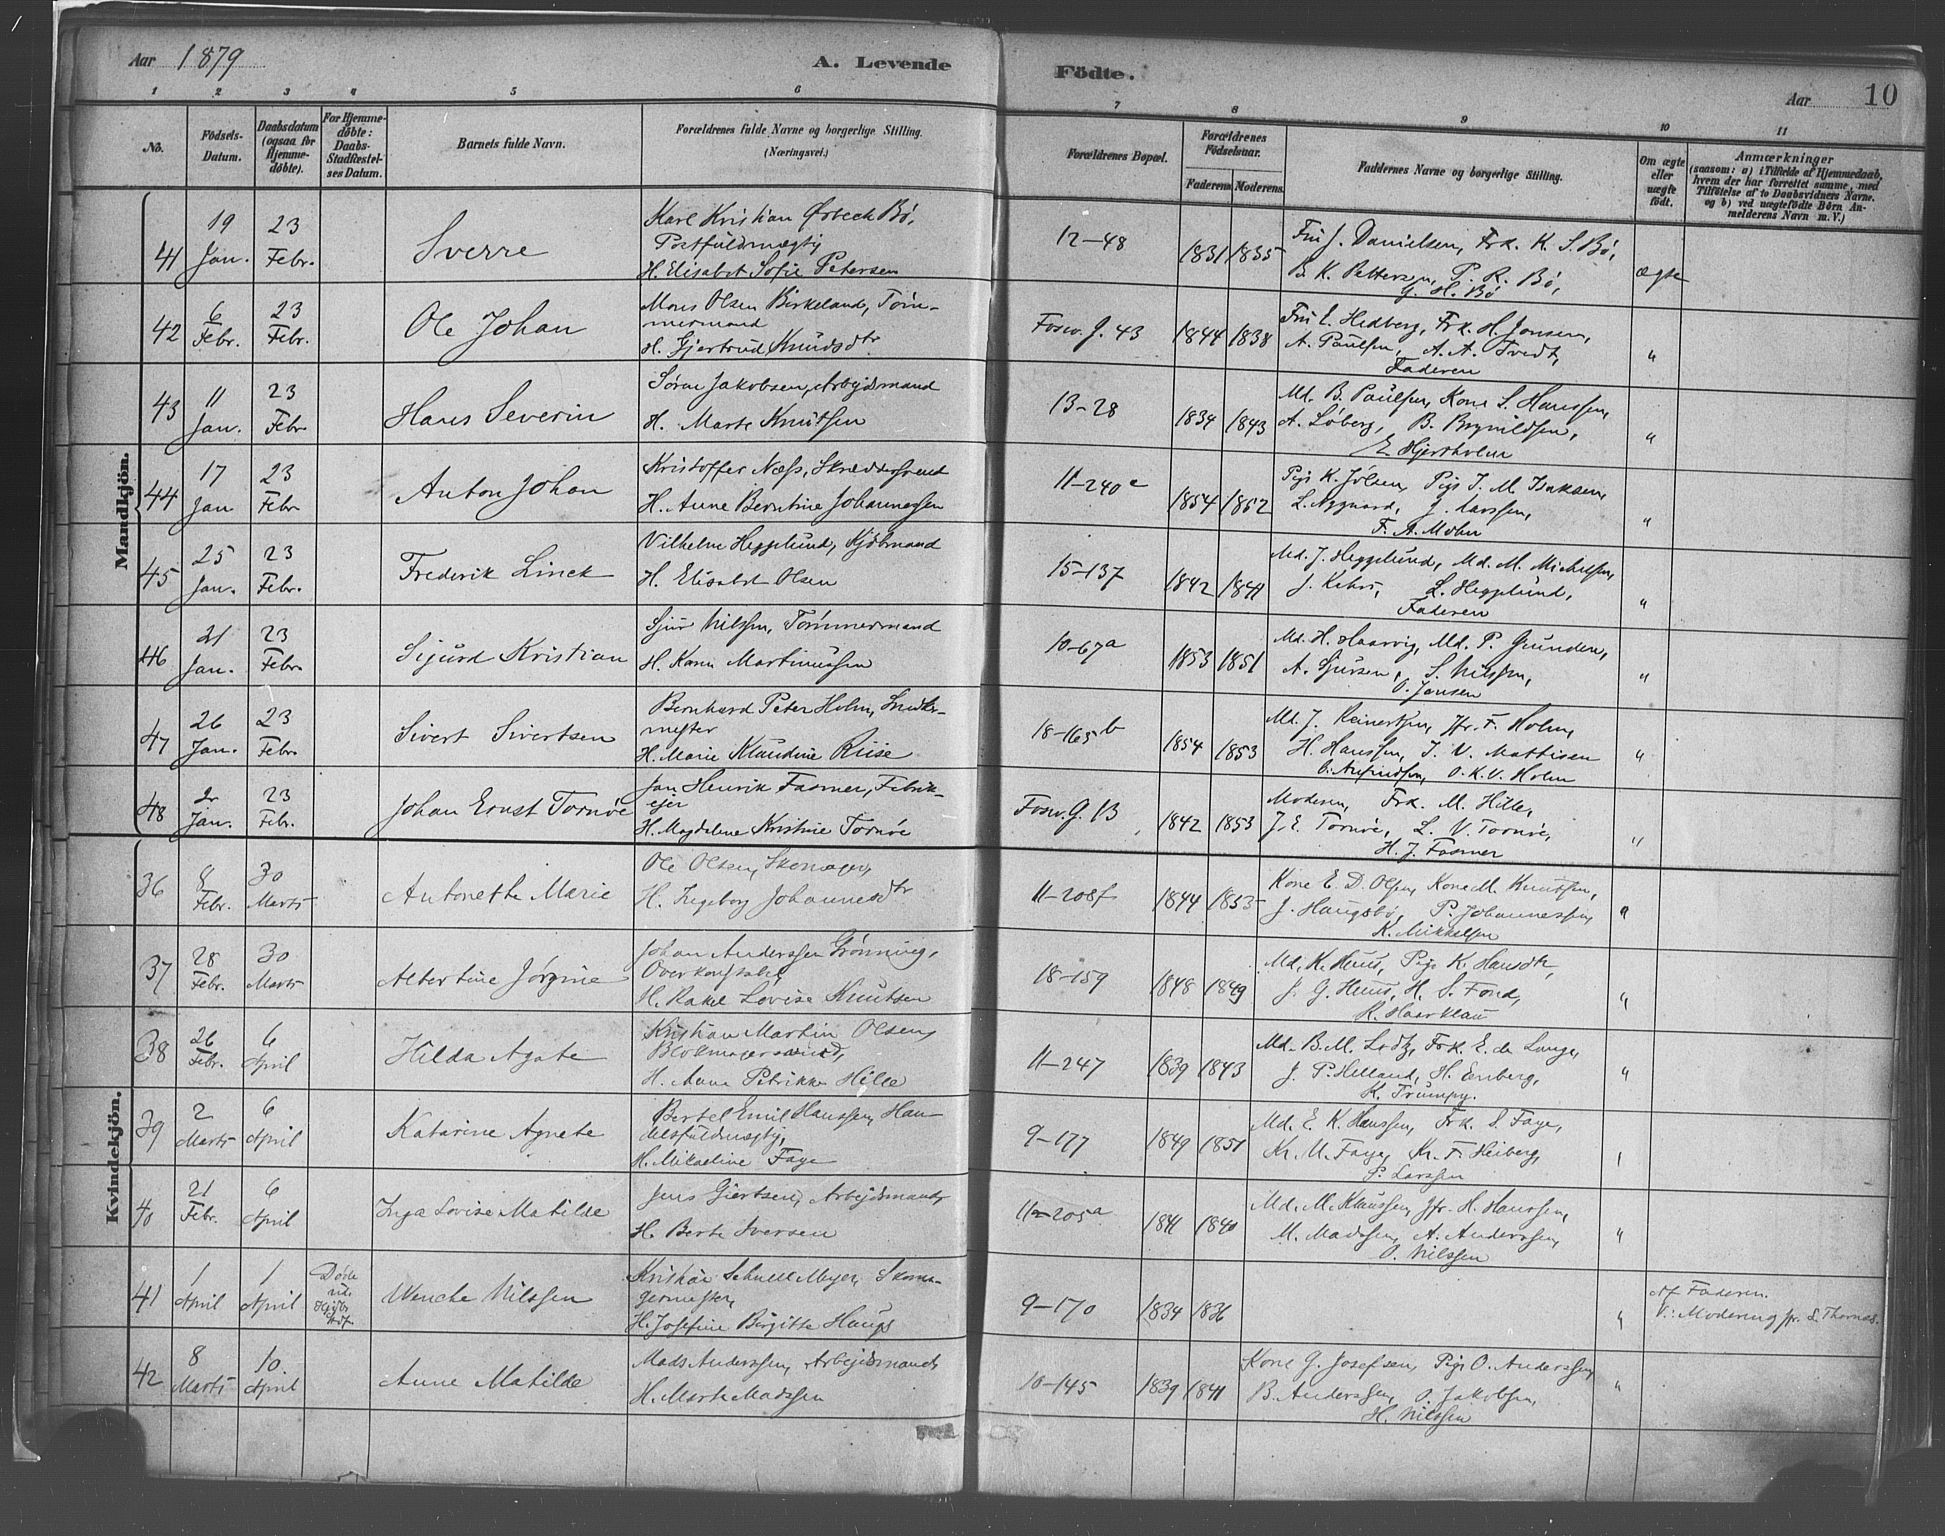 Aar 1879
A. Levende
Födte.
Aar 10
1 2 3 4 5 6 7 8 9 10 11
No.
Födsels-Datum.
Daabsdatum (ogsaa for Hjemme-döbte).
For Hjemme-döbte: Daabs-Stadfæstel-ses Datum.
Barnets fulde Navn.
Forældrenes fulde Navne og borgerlige Stilling. (Næringsvei.)
Forældrenes Bopæl.
Forældrenes Födselsaar.
Faderens. Moderens.
Faddernes Navne og borgerlige Stilling.
Om ægte eller uægte födt.
Anmærkninger
(saasom: a) i Tilfælde af Hjemmedaab,
hvem der har forrettet samme, med
Tilföielse af to Daabsvidners Navne.
og b) ved uægtefödte Börn An-
melderens Navn m. V.)
Mandkjön.
41 19 Jan. 23 Febr. Sverre
Karl Kristian Ørbech Bö,
Postfuldmægtig
H. Elisabet Sofie Petersen
12-48 1831 1835
Fru J. Danielsen, Frk. K. S. Bö,
B. K. Pettersen, P. R. Bö,
G. H. Bö
ægte
42 6 Febr. 23 Febr. Ole Johan
Mons Olsen Birkeland, Töm-
mermand
H. Gjertrud Knudsdtr
Fosw. G. 43 1844 1838
Fru E. Hedberg, Frk. H. Jonsen,
A. Paulsen, A. A. Tvedt,
Faderen
"
43 11 Jan. 23 Febr. Hans Severin
Sören Jakobsen, Arbejdsmand
H. Marte Knutsen
13-28 1834 1843
Md. B. Paulsen, Kone S. Hanssen,
A. Löberg, B. Brynildsen,
E Hjertholm
"
44 17 Jan 23 Febr Anton Johan
Kristoffer Næss, Skræddersvend
H. Anne Berntine Johannessen
11-240c 1854 1852
Pige K. Jölsen, Pige J. M. Isaksen,
L. Nygaard, J. Larssen,
F. A. Mohn
"
45 25 Jan. 23 Febr. Frederik Linck
Vilhelm Hegglund, Kjöbmand
H. Elisabet Olsen
15-137 1842 1841
Md. J. Hegglund, Md. M. Michelsen,
J. L. Hegglund,
Faderen
"
46 21 Jan. 23 Febr. Sigurd Kristian
Sjur Nilsen, Tömmermand
H. Karen Martinussen
10-67a 1853 1851
Md. H. Haarvig, Md. P. Grunden,
A. Sjursen, S. Nilssen,
O. Jonsen
"
47 26 Jan. 23 Febr. Sivert Sivertsen
Bernhard Peter Holm, Snedker-
mester
H. Marie Klaudine Riise
18-165b 1854 1853
Md. J. Reinertsen, Jfr. F. Holm,
H. Hanssen, J. V. Mattisen
O. Arfindsen, O. K. V. Holm
"
48 2 Jan. 23 Febr. Johan Ernst Tornöe
Jan Henrik Fasmer, Fabrik-
ejer
H. Magdalene Kristine Tornöe
Fosw. G. 13 1842 1853
Moderen, Frk. M. Hille,
J. E. Tornöe, L. V. Tornöe,
H. J. Fasmer
"
Kvindekjön.
36 8 Febr. 30 Marts Antonette Marie
Ole Olsen, Skomager,
H. Ingeborg Johannesdtr
11-208f 1844 1853
Kone E. D. Olsen, Kone M. Knutsen,
J. Haugsbö, P. Johannessen,
K. Mikkelsen
"
37 28 Febr. 30 Marts Albertine Jörgine
Johan Anderssen Grönning,
Overkonstabel,
H. Rakel Lovise Knutsen
18-159 1848 1849
Md. K. Huus, Pige K. Hansdtr,
J. G. Huus, H. S. Fond,
R. Haarklau
"
38 26 Febr. 6 April Hilda Agate
Kristian Martin Olsen,
Blokmagersvend,
H. Anne Petrikke Hille
11-247 1839 1843
Md. B. M. Lodtz, Frk. E. de Lange,
J. P. Helland, H. Enberg,
K. Trumpy.
"
39 2 Marts 6 April Katarine Agnete
Bertel Emil Hanssen, Han-
delsfuldmægtig,
H. Mikaeline Faye
9-177 1849 1851
Md. E. K. Hanssen, Frk. S. Faye,
Kr. M. Faye, Kr. F. Heiberg,
S. Larssen
"
40 21 Febr. 6 April Inga Lovise Matilde
Jens Giertsen, Arbejdsmand,
H. Berte Iversen
11-205a 1841 1840
Md. M. Klaussen, Jfr. H. Hanssen,
M. Madssen, A. Anderssen,
O. Nilssen
"
41 1 April 1 April Döde
Wenche Nilssen
Kristian Meyer, Skoma-
germester,
H. Josefine Birgitte Haugs
9-170 1834 1836
"
Af Faderen.
V: Moderen og jfr. S. Thornæs.
42 8 Marts 10 April Anne Matilde
Mads Anderssen, Arbejdsmand,
H. Marte Madssen
10-145 1839 1841
Kone G. Josefsen, Pige O. Anderssen,
B. Anderssen, O. Jakobsen,
H. Nilssen
"